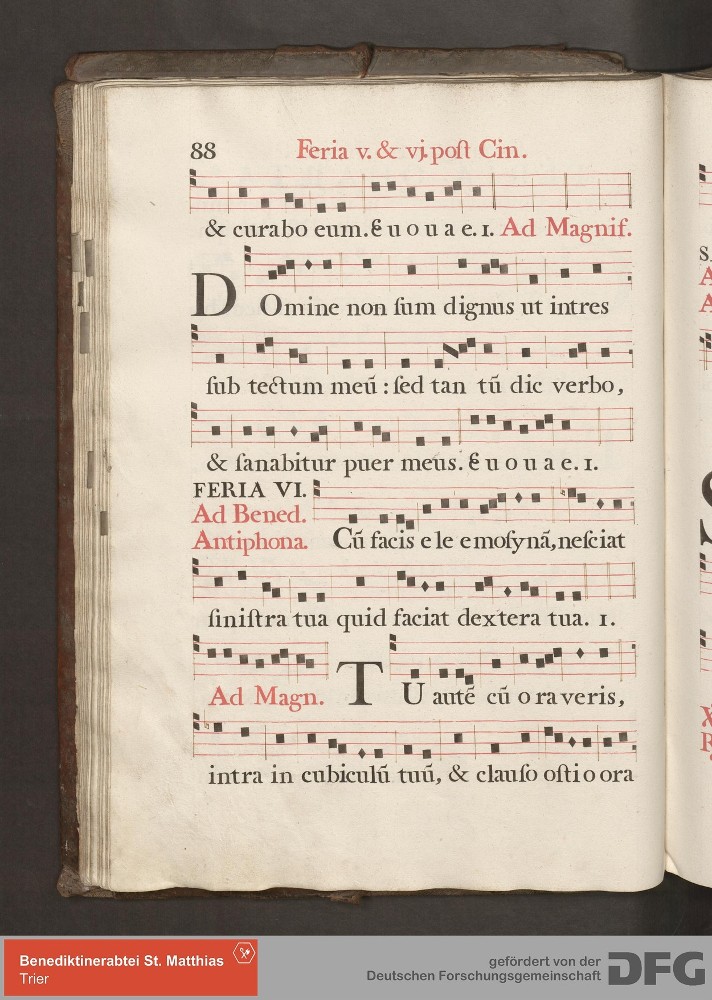 88 Feria v. & vj. poſt Cin.
& curabo eum. E u o u a e. 1. Ad Magnif.
DOmine non ſum dignus ut intres
ſub tectum meū : ſed tan tū dic verbo,
& ſanabitur puer meus. E u o u a e. 1.
FERIA VI.
Ad Bened.
Antiphona. Cū facis e le emoſynā, neſciat
ſiniſtra tua quid faciat dextera tua. 1.
Ad Magn. TU autē cū o raveris,
intra in cubiculū tuū, & clauſo oſtio ora
Benediktinerabtei St. Matthias
Trier
gefördert von der
Deutschen Forschungsgemeinschaft DFG